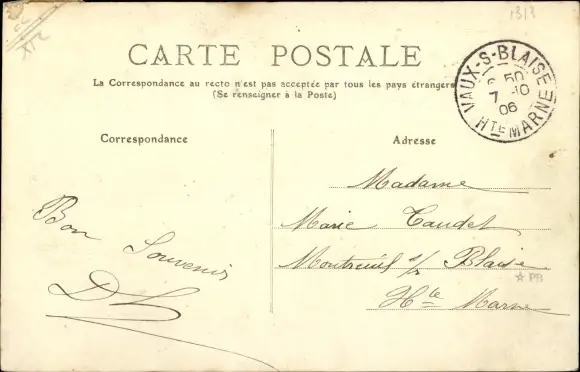 1313
CARTE POSTALE
La Correspondance au recto n'est pas acceptée par tous les pays étrangers
(Se renseigner à la Poste)
VAUX-S-BLAISE
6 50
7 -10
06
HTE MARNE
Correspondance
Adresse
Bon
Souvenir
Madame
Marie Caudel
Montreuil s/ Blaise
Hte Marne
PB